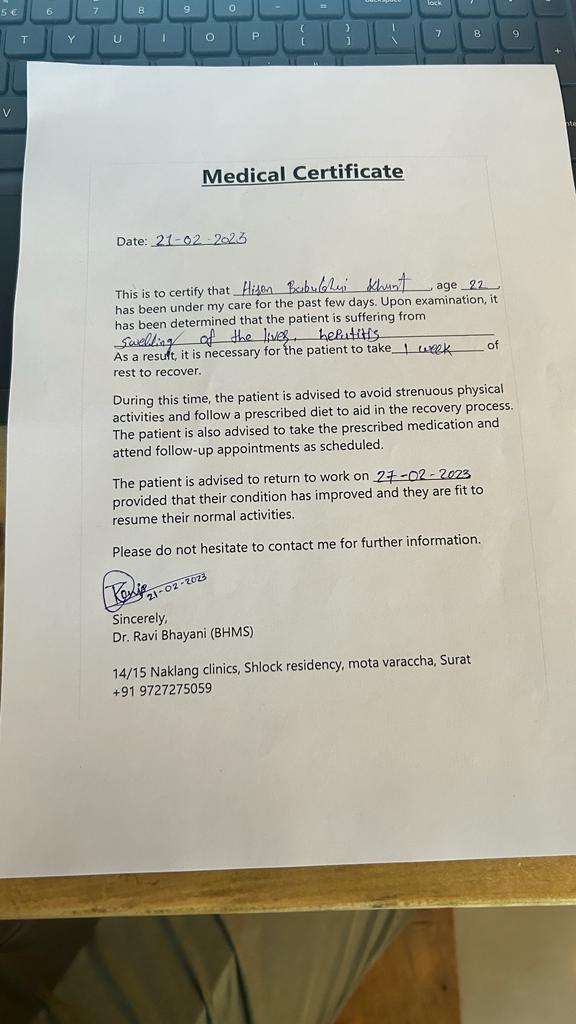 Medical Certificate
Date: 21-02-2023
This is to certify that Hiren Babubhai Khunt, age 22,
has been under my care for the past few days. Upon examination, it
has been determined that the patient is suffering from
Swelling of the liver, hepititis
As a result, it is necessary for the patient to take 1 week of
rest to recover.
During this time, the patient is advised to avoid strenuous physical
activities and follow a prescribed diet to aid in the recovery process.
The patient is also advised to take the prescribed medication and
attend follow-up appointments as scheduled.
The patient is advised to return to work on 27-02-2023
provided that their condition has improved and they are fit to
resume their normal activities.
Please do not hesitate to contact me for further information.
21-02-2023
Sincerely,
Dr. Ravi Bhayani (BHMS)
14/15 Naklang clinics, Shlock residency, mota varaccha, Surat
+91 9727275059